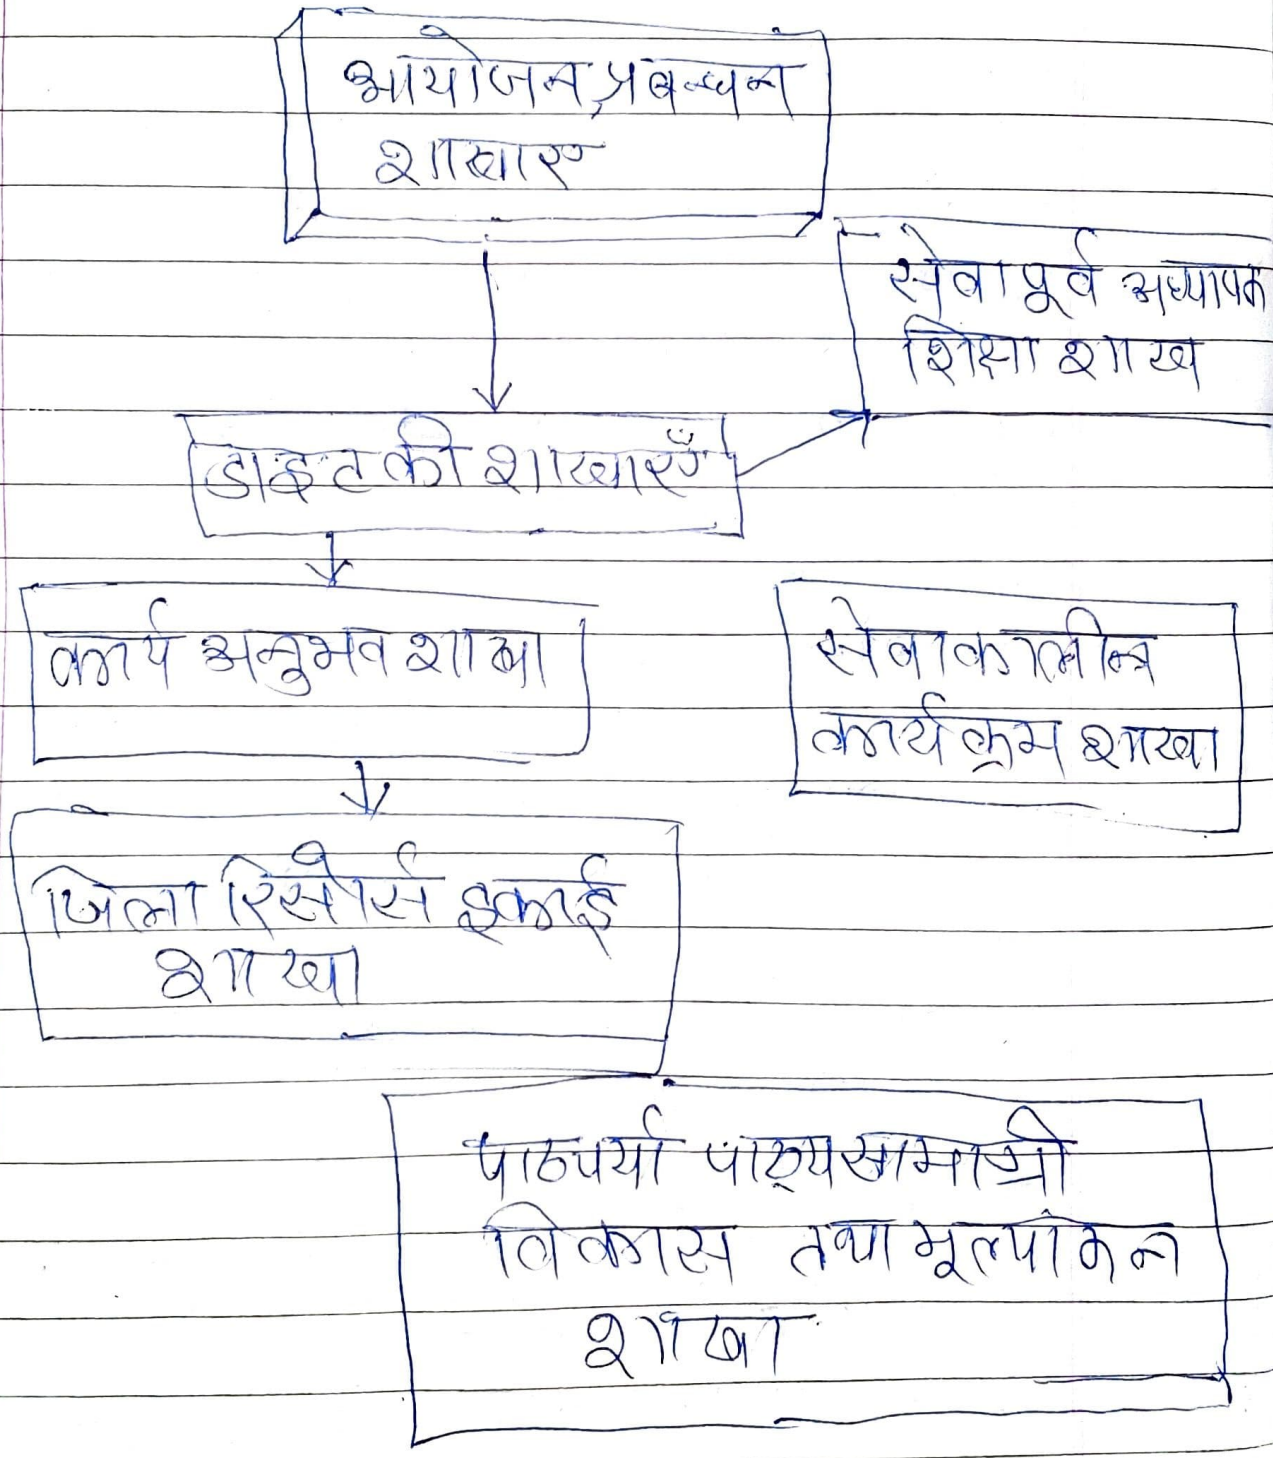 आयोजन प्रबन्धन
शाखाए
सेवा पूर्व अध्यापक
शिक्षा शाख
डाइट की शाखाएँ
कार्य अनुभव शाखा
सेवाकालीन
कार्यक्रम शाखा
जिला रिसोर्स इकाई
शाखा
पाठचर्या पाठ्यसामाग्री
विकास तथा मूल्यांकन
शाखा